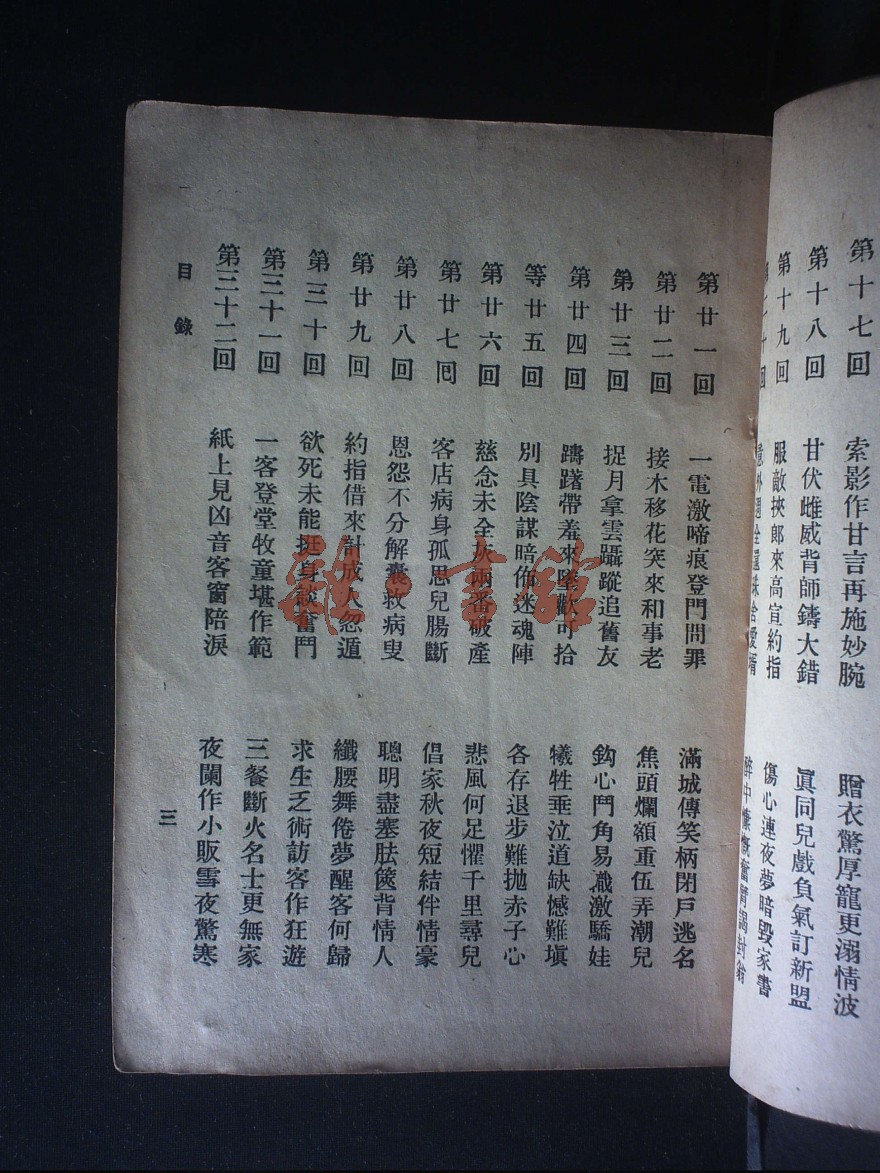 第十七回 索影作甘言再施妙腕 贈衣驚厚寵更溺情波
第十八回 甘伏雌威背師鑄大錯 眞同兒戲負氣訂新盟
第十九回 服敵挾郎來高宣約指 傷心連夜夢暗毀家書
第廿一回 一電激啼痕登門問罪 滿城傳笑柄閉戶逃名
第廿二回 接木移花突來和事老 焦頭爛額重伍弄潮兒
第廿三回 捉月拿雲躡蹤追舊友 鈎心鬥角易幟激驕娃
第廿四回 躊躇帶羞來墜歡可拾 犧牲垂泣道缺憾難塡
等廿五回 別具陰謀暗佈迷魂陣 各存退步難抛赤子心
第廿六回 慈念未全灰兩番破產 悲風何足懼千里尋兒
第廿七回 客店病身孤思兒腸斷 倡家秋夜短結伴情豪
第廿八回 恩怨不分解囊救病叟 聰明盡塞胠篋背情人
第廿九回 約指借來計成人忽遁 纖腰舞倦夢醒客何歸
第三十回 欲死未能挺身談奮鬥 求生乏術訪客作狂遊
第三十一回 一客登堂牧童堪作範 三餐斷火名士更無家
第三十二回 紙上見凶音客窗陪淚 夜闌作小販雪夜驚寒
目錄
三
雜·書館